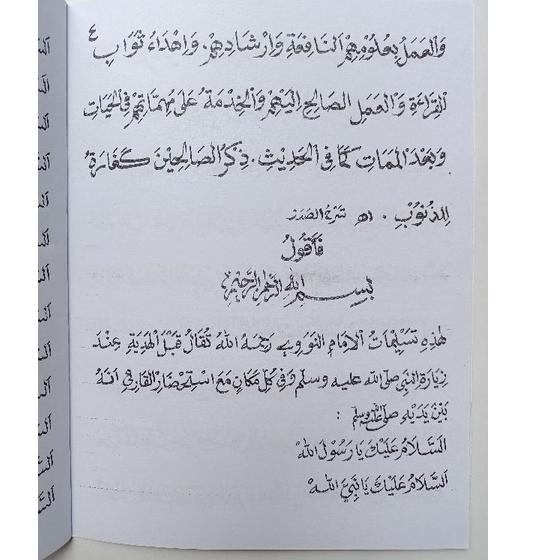 وَالْعَمَلُ بِعُلُوْمِهِمُ النَّافِعَةِ وَاِرْشَادِهِمْ. وَاِهْدَاءُ ثَوَابِ ٤
الْقِرَاءَةِ وَالْعَمَلِ الصَّالِحِ اِلَيْهِمْ وَالْخِدْمَةُ عَلَى مُهِمَّاتِهِمْ فِي الْحَيَاتِ
وَبَعْدَ الْمَمَاتِ كَمَا فِي الْحَدِيْثِ. ذِكْرُ الصَّالِحِيْنَ كَفَّارَةٌ
لِلذُّنُوْبِ. اهـ شَرْحُ الصُّدُوْرِ
فَأَقُوْلُ
بِسْمِ اللهِ الرَّحْمٰنِ الرَّحِيْمِ
هٰذِهِ تَسْلِيْمَاتُ الْاِمَامِ النَّوَوِيِّ رَحِمَهُ اللهُ تُقَالُ قَبْلَ الْهَدِيَّةِ عِنْدَ
زِيَارَةِ النَّبِيِّ صَلَّى اللهُ عَلَيْهِ وَسَلَّمَ وَفِيْ كُلِّ مَكَانٍ مَعَ اسْتِحْضَارِ الْقَارِئِ اَنَّهُ
بَيْنَ يَدَيْهِ صلى الله عليه وسلم :
اَلسَّلَامُ عَلَيْكَ يَا رَسُوْلَ اللهْ
اَلسَّلَامُ عَلَيْكَ يَا نَبِيَّ اللهْ